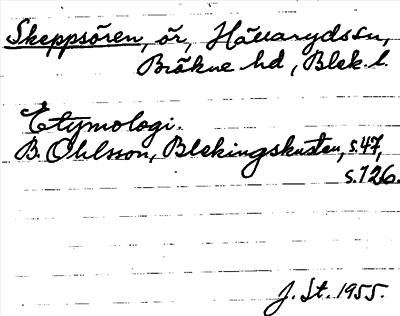 Skeppsören, ör, Hävarydssn,
Bräkne hd, Blek. l.
Etymologi.
B. Ohlsson, Blekingskusten, s. 47,
s. 126.
J. St. 1955.